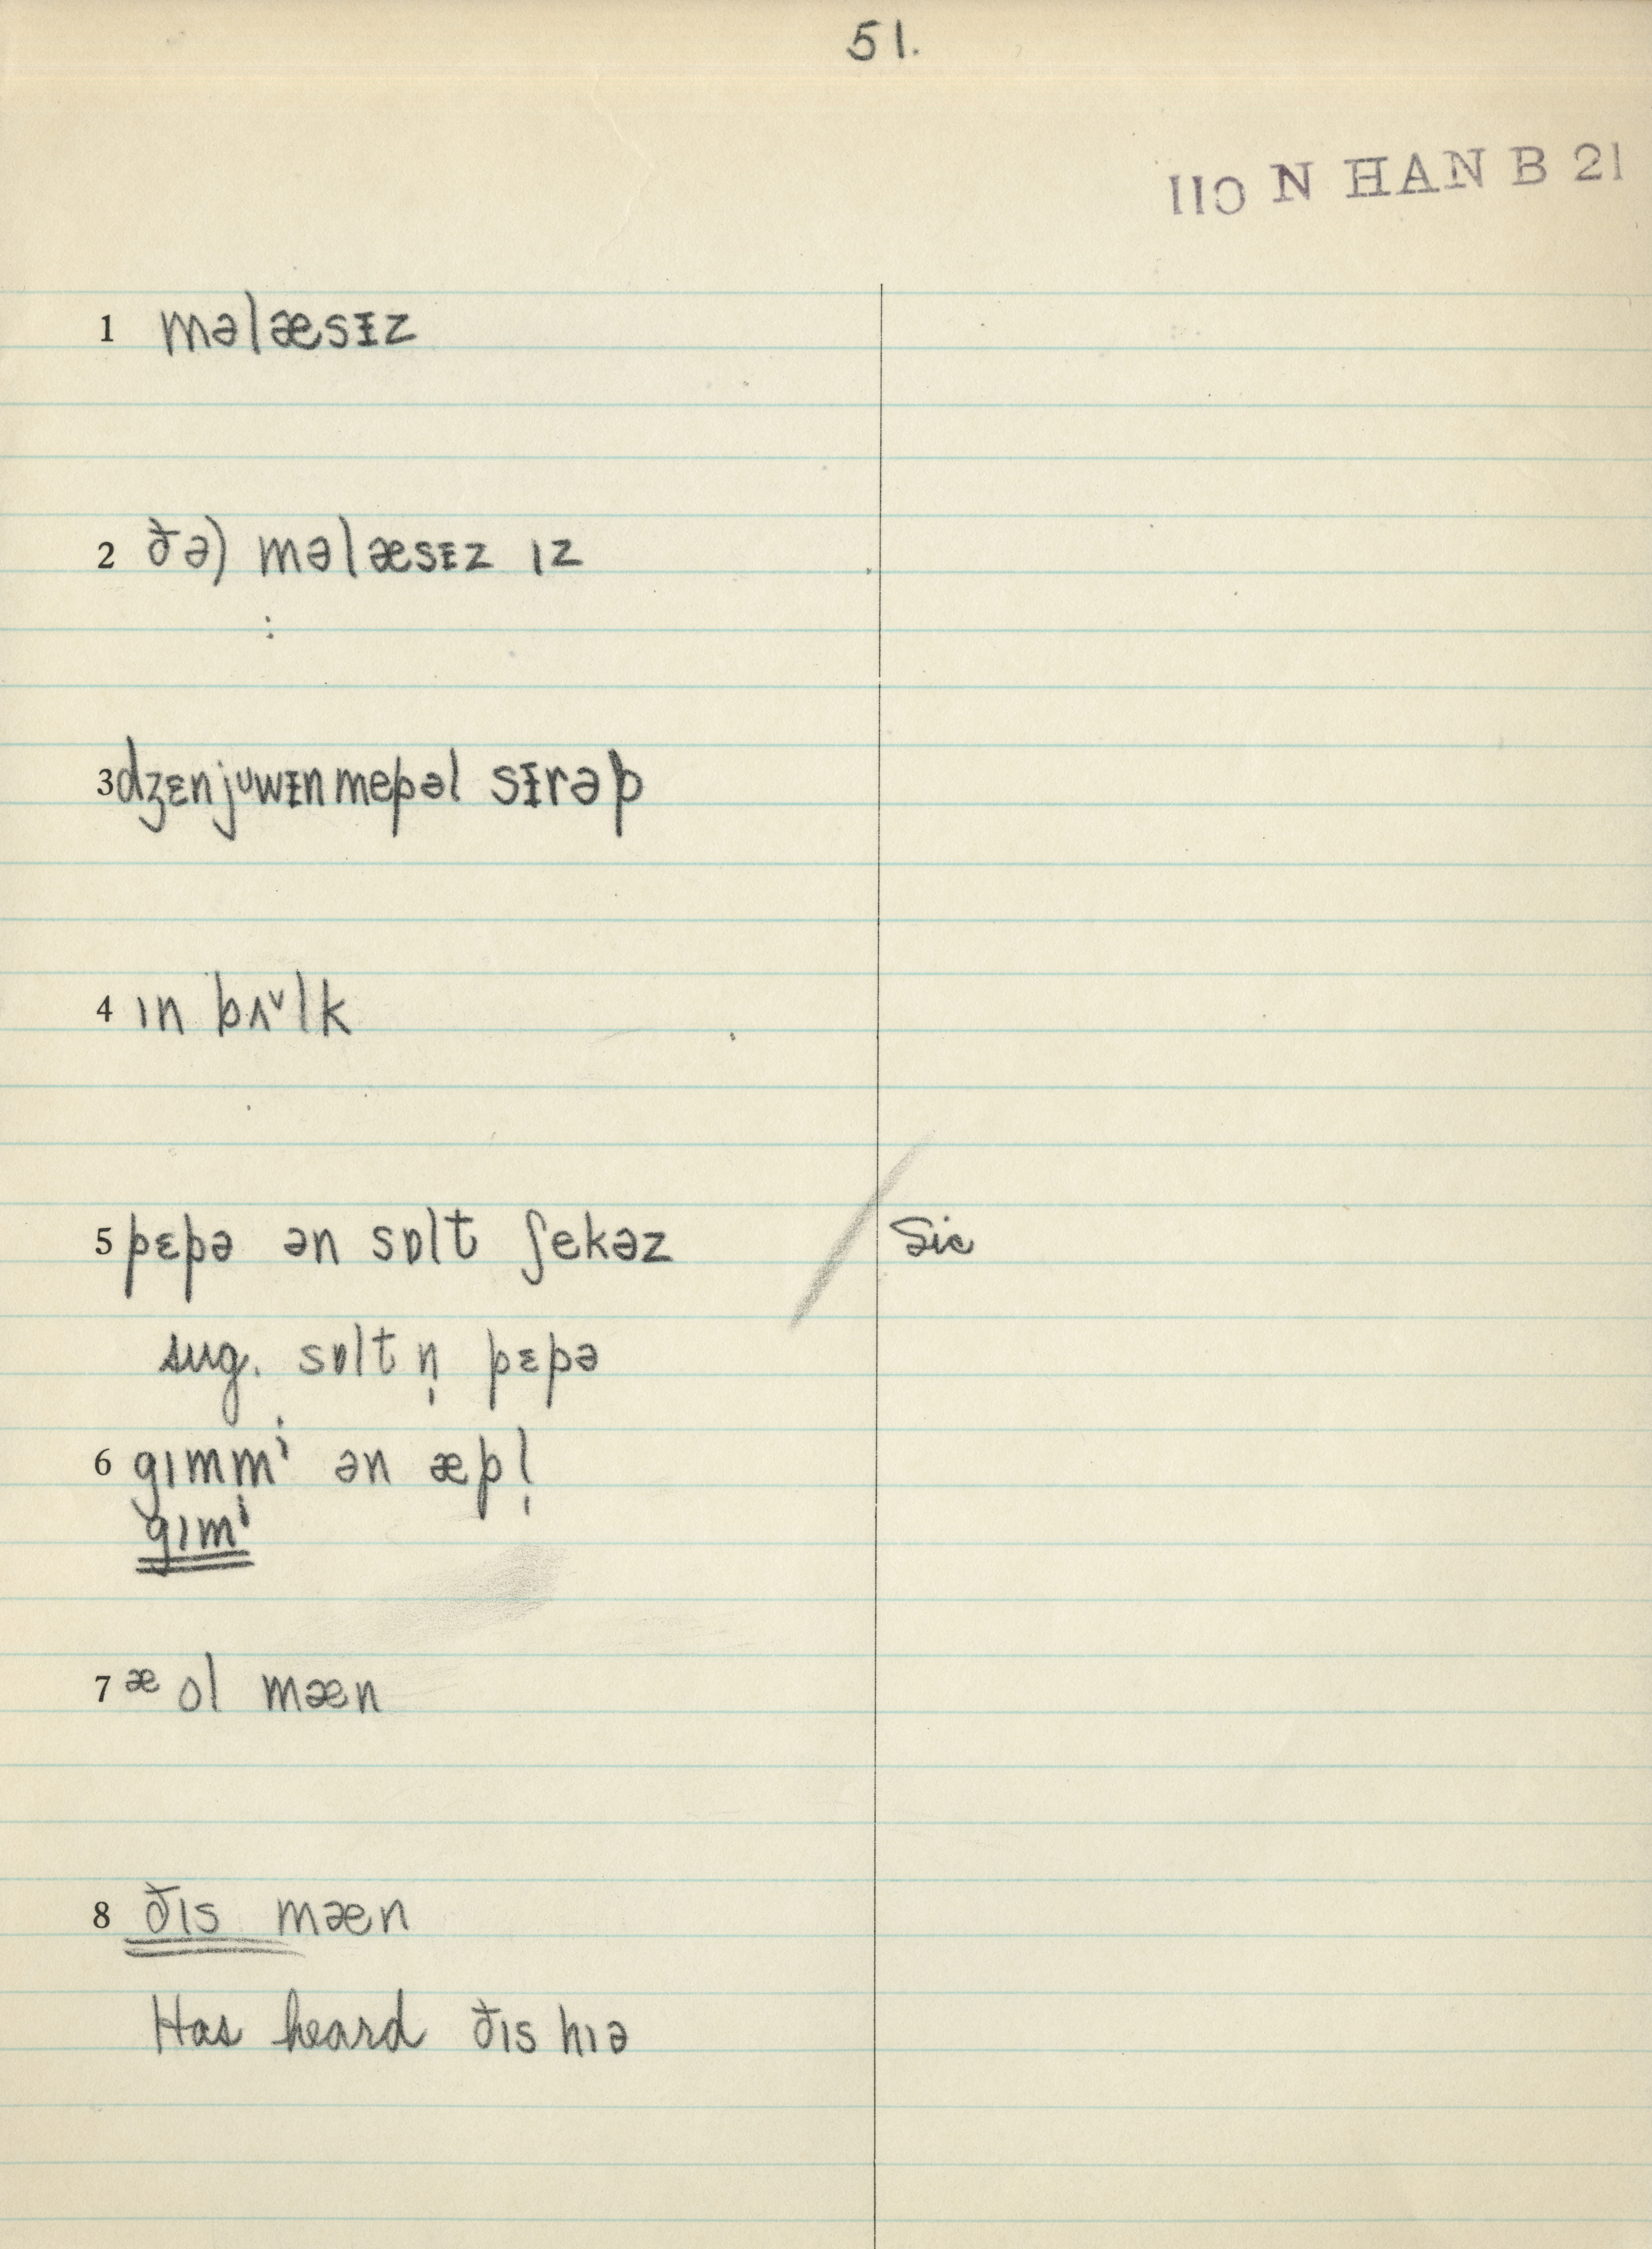 51.
110 N HAN B 21
1 məlæsɪ̵z
2 ðə) məlæsɪ̵z ɪz
:
3 dʒɛnjᶸwɪ̵n mepəl sɪ̵rəp
4 ɪn bʌ˅lk
5 pɛpə ən sɒlt ʃekəz Sic
sug. sɒlt n̩ pɛpə
6 gɪmmⁱ ən æpl̩
gɪmⁱ
7 æ ol mæn
8 ðɪs mæn
Has heard ðɪs hɪə